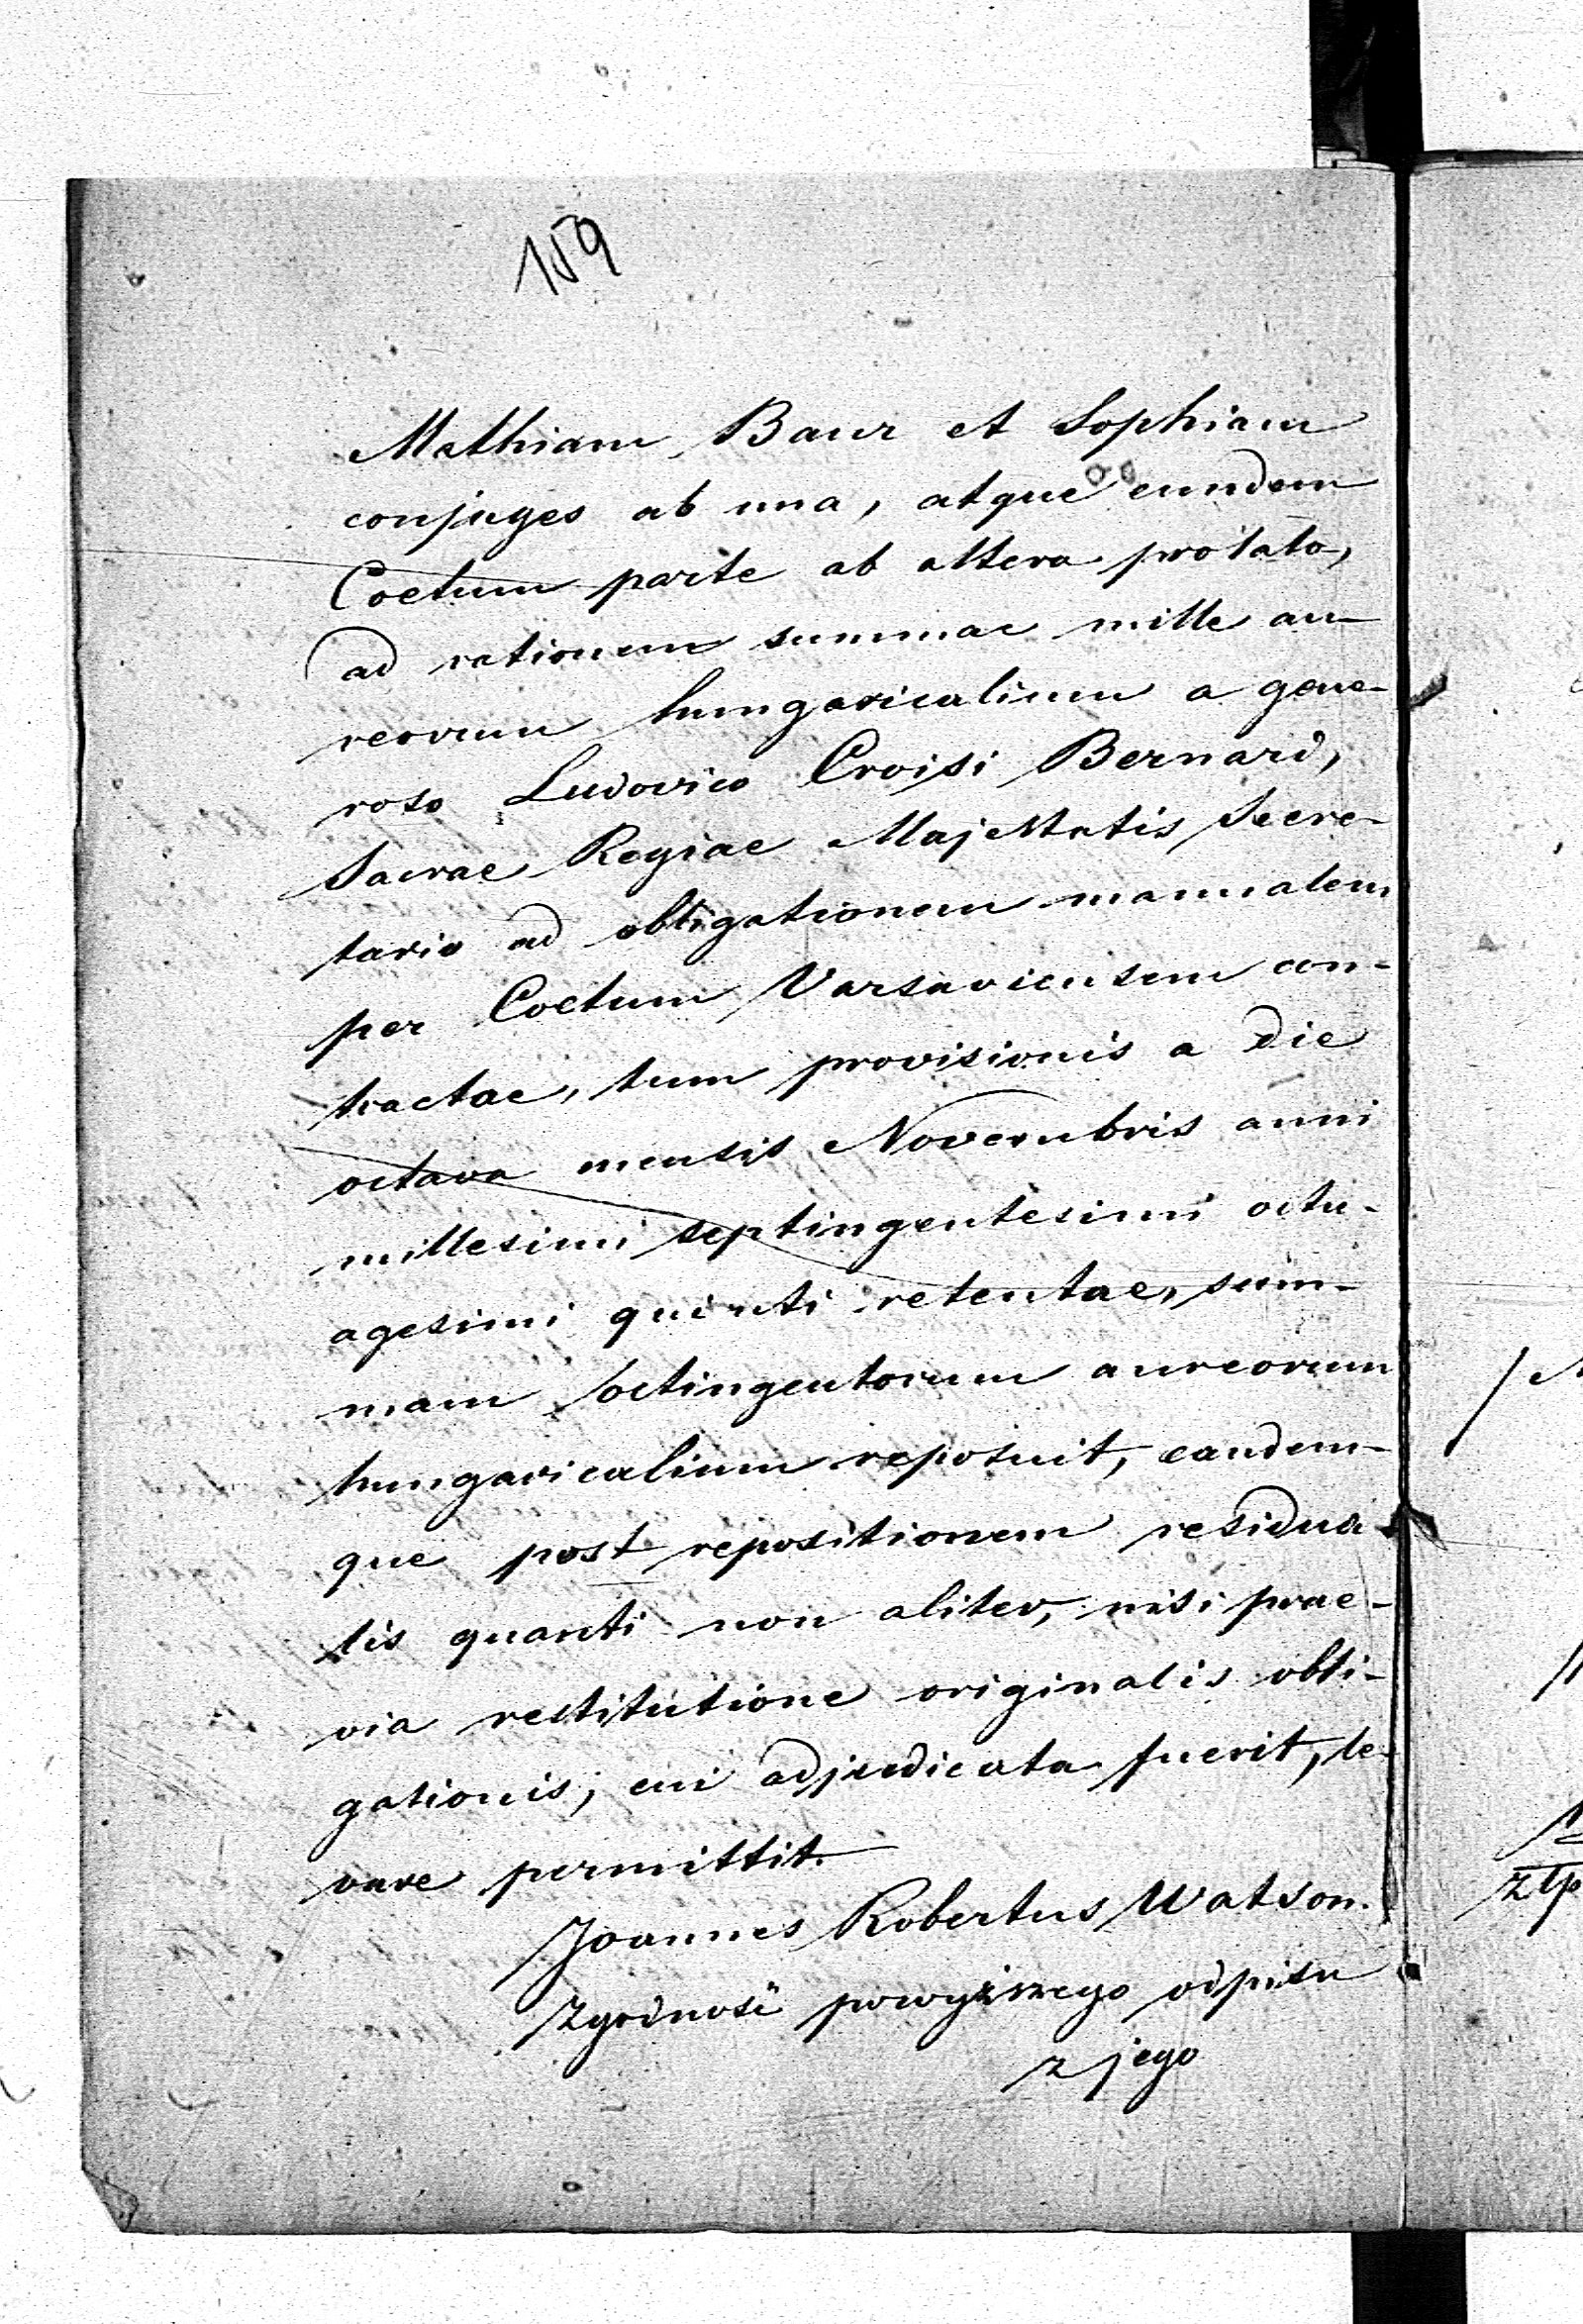 159
Mathiam Baur et Sophiam
conjuges ab una, atque eundem
Coetum parte ab altera prolato,
ad rationem summae mille au-
reorum hungaricalium a gene-
roso Ludovico Croisi Bernard,
Sacrae Regiae Majestatis Secre-
tario ad obligationem manualem
per Coetum Varsaviensem con-
tractae, tum provisionis a die
octava mensis Novembris anni
millesimi septingentesimi octu-
agesimi quinti retentae, sum-
mam octingentorum aureorum
hungaricalium reposuit, eandem-
que post repositionem residua-
tis quanti non aliter, nisi prae-
via restitutione originalis obli-
gationis, cui adjudicata fuerit, le-
vare permittit.
Joannes Robertus Watson.
Zgodność powyższego odpisu
z jego
złp